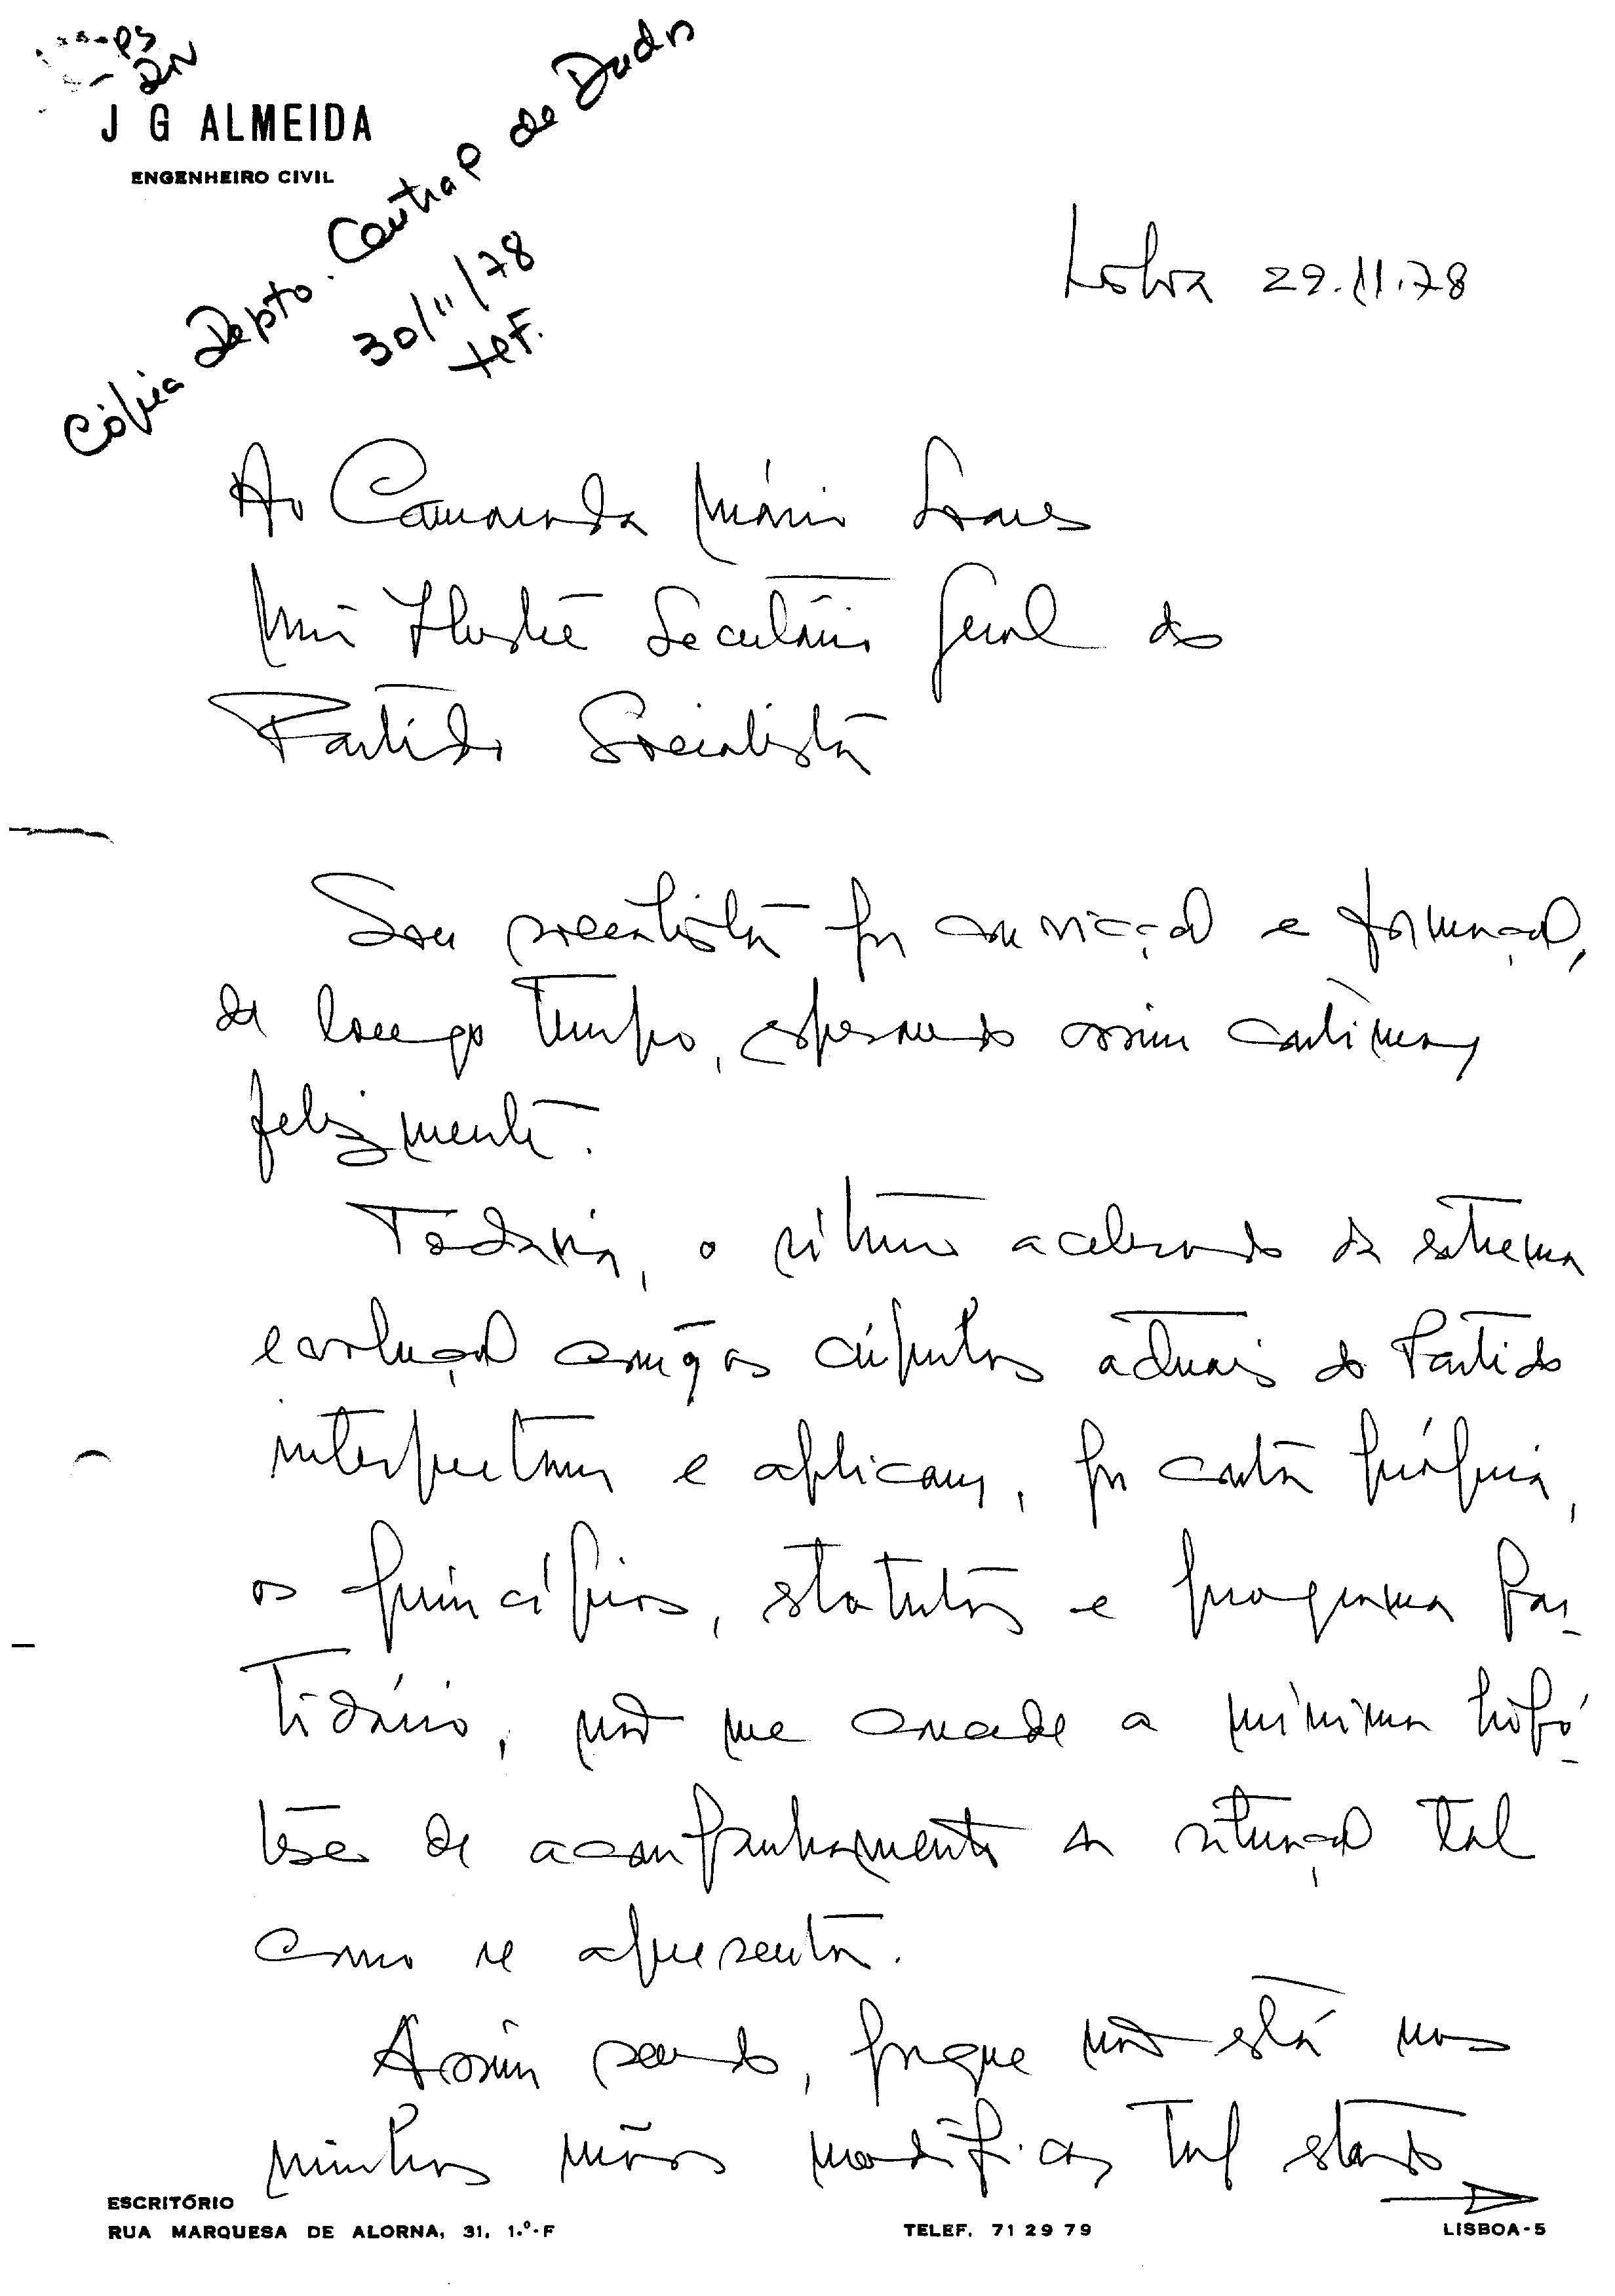 PS
J G ALMEIDA
ENGENHEIRO CIVIL
Cópia Depto. Central de Dados
30/11/78
Lisboa 29.11.78
Ao Camarada Mário Soares
Mui Ilustre Secretário Geral do
Partido Socialista
Sou socialista por convicção e formação,
de longo tempo, esperando assim continuar,
felizmente.
Todavia, o ritmo acelerado da extrema
evolução com q os adjuntos actuais do Partido
interpretam e aplicam, por conta própria,
os princípios, estatutos e programa par-
tidário, não me concede a mínima hipó-
tese de acompanhamento da situação tal
como se apresenta.
Assim sendo, porque não está nas
minhas mãos modificar tal estado
ESCRITÓRIO
RUA MARQUESA DE ALORNA, 31, 1.º-F
TELEF. 71 29 79
LISBOA-5